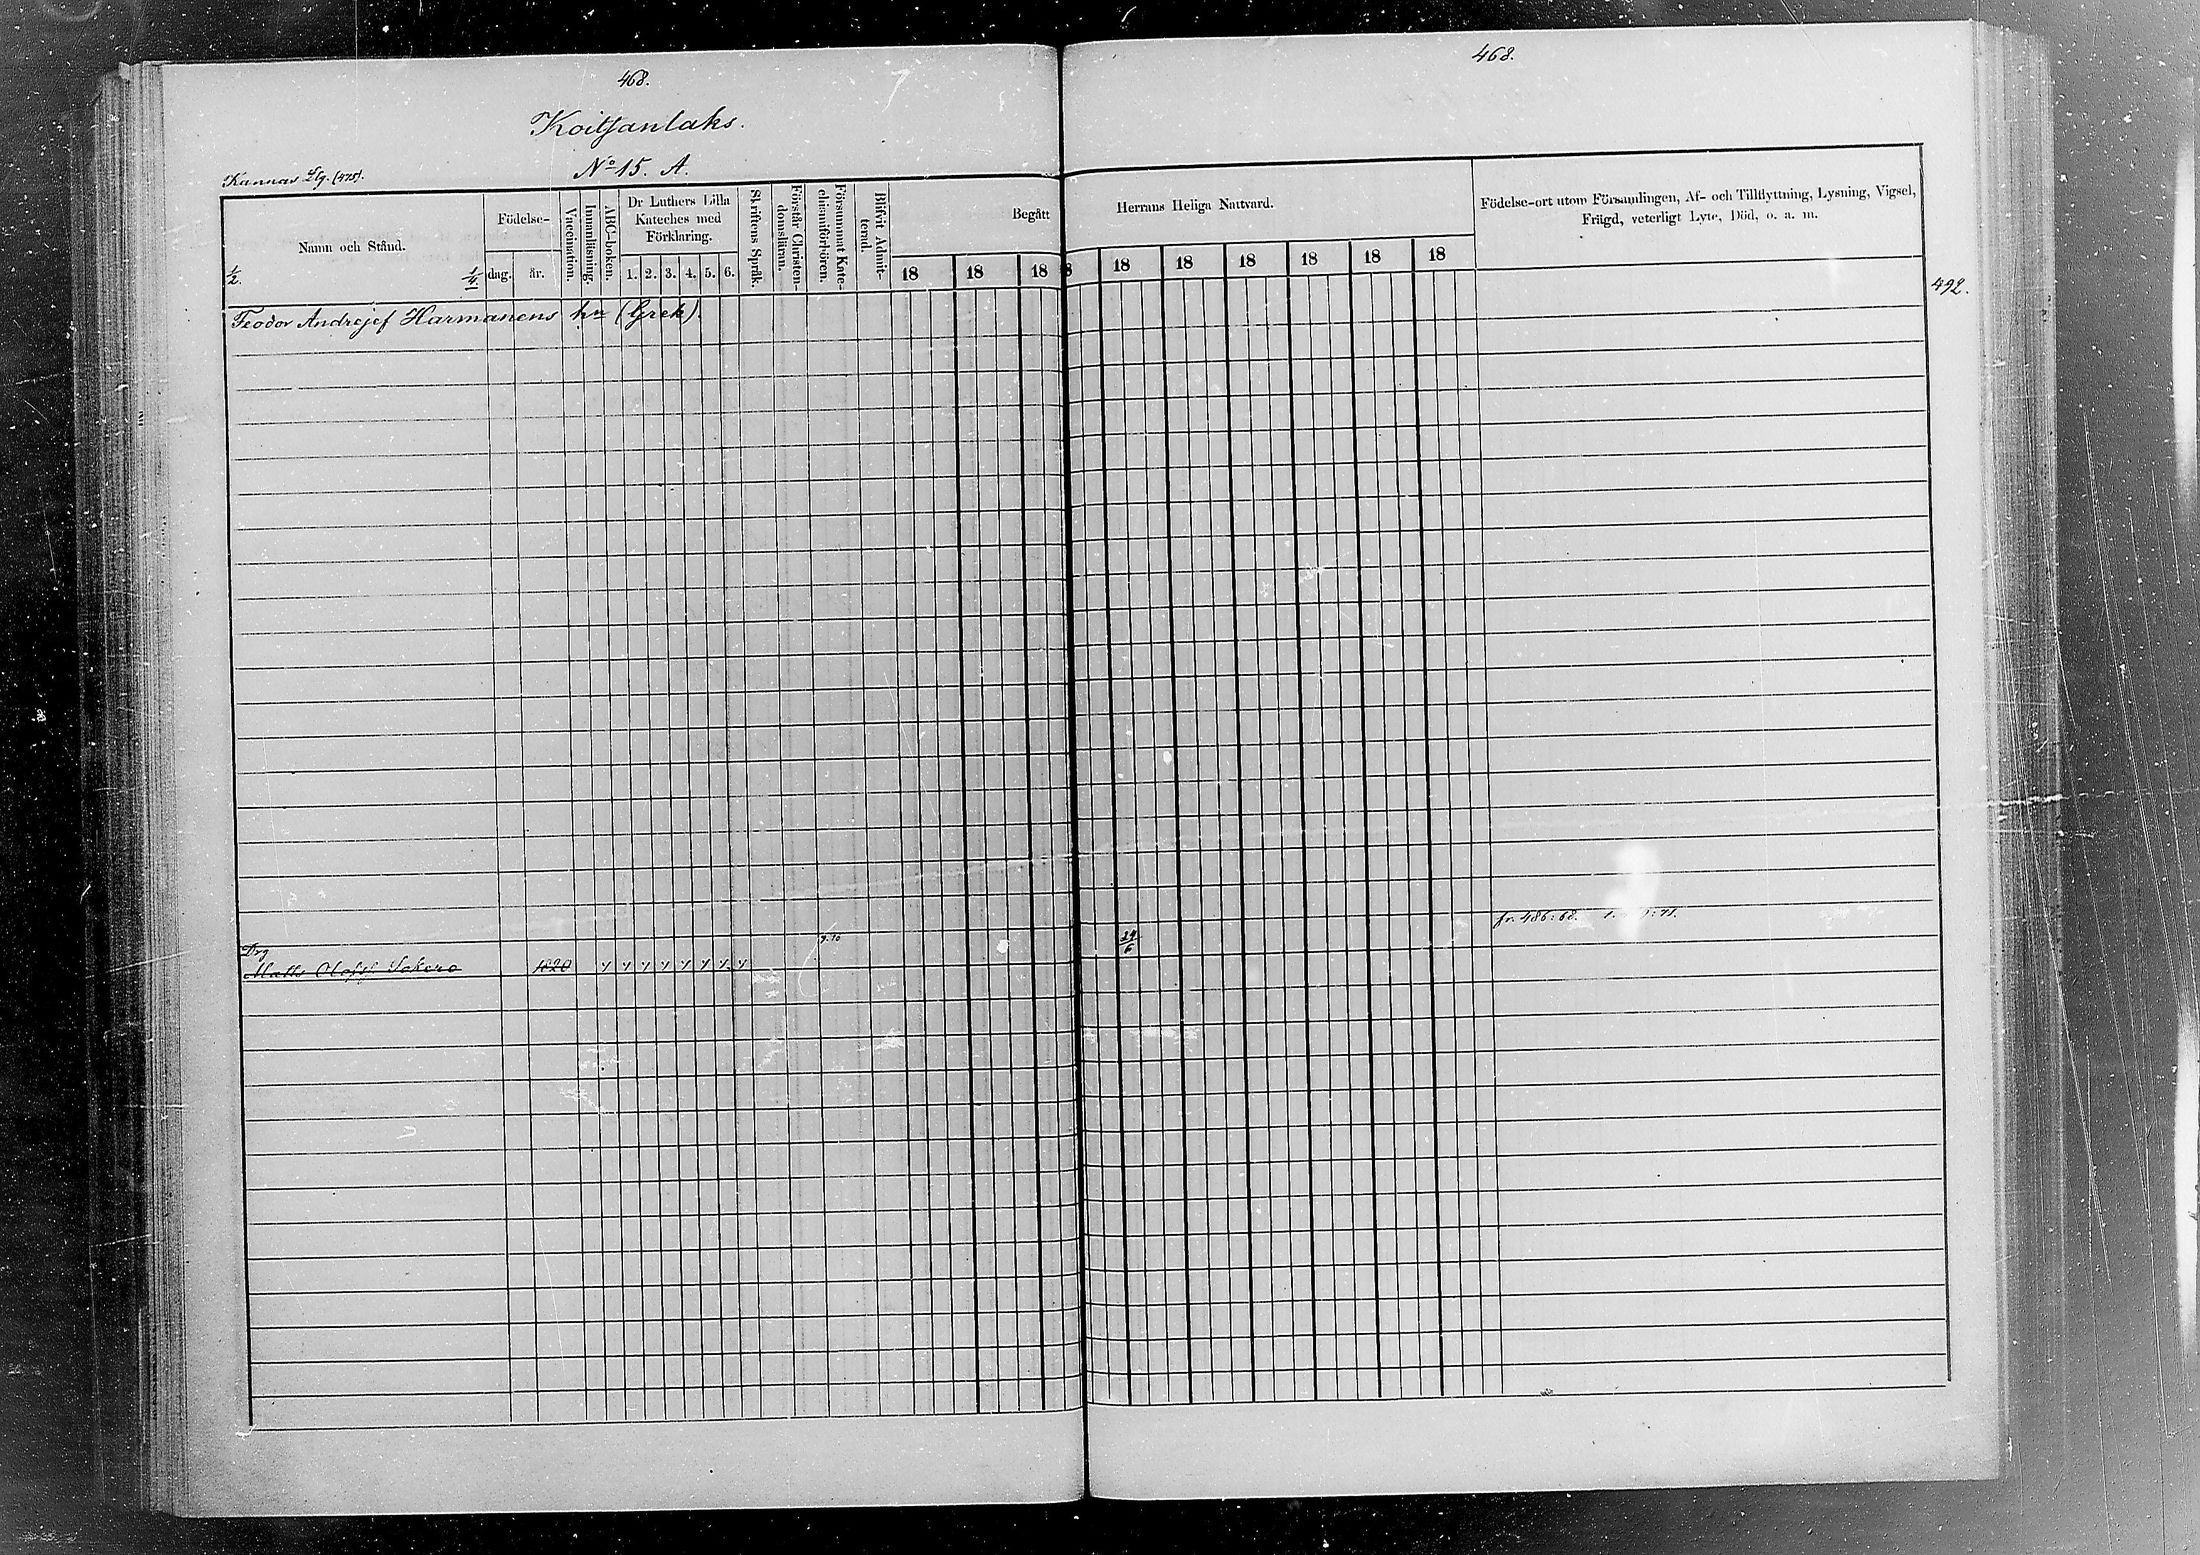 468.
Koitsanlaks.
No 15. A.
Kannas Lg. (475).
Namn och Stånd.
1/2. 1/4.
Födelse-
dag. år.
Vaccination.
Innanläsning.
ABC-boken.
Dr Luthers Lilla Kateches med Förklaring.
1. 2. 3. 4. 5. 6.
Skriftens Språk.
Förstår Christendomsläran.
Försummat Katechismförhören.
Blifvit Admitterad.
Begått
18 18 18
Feodor Andrejef Harmanens hn (Grek).
Drg
Matts Olofsf 1820
9.10
468.
Herrans Heliga Nattvard.
8 18 18 18 18 18 18
Födelse-ort utom Församlingen, Af- och Tillflyttning, Lysning, Vigsel,
Frägd, veterligt Lyte, Död, o. a. m.
492.
fr. 486:68.
24/6